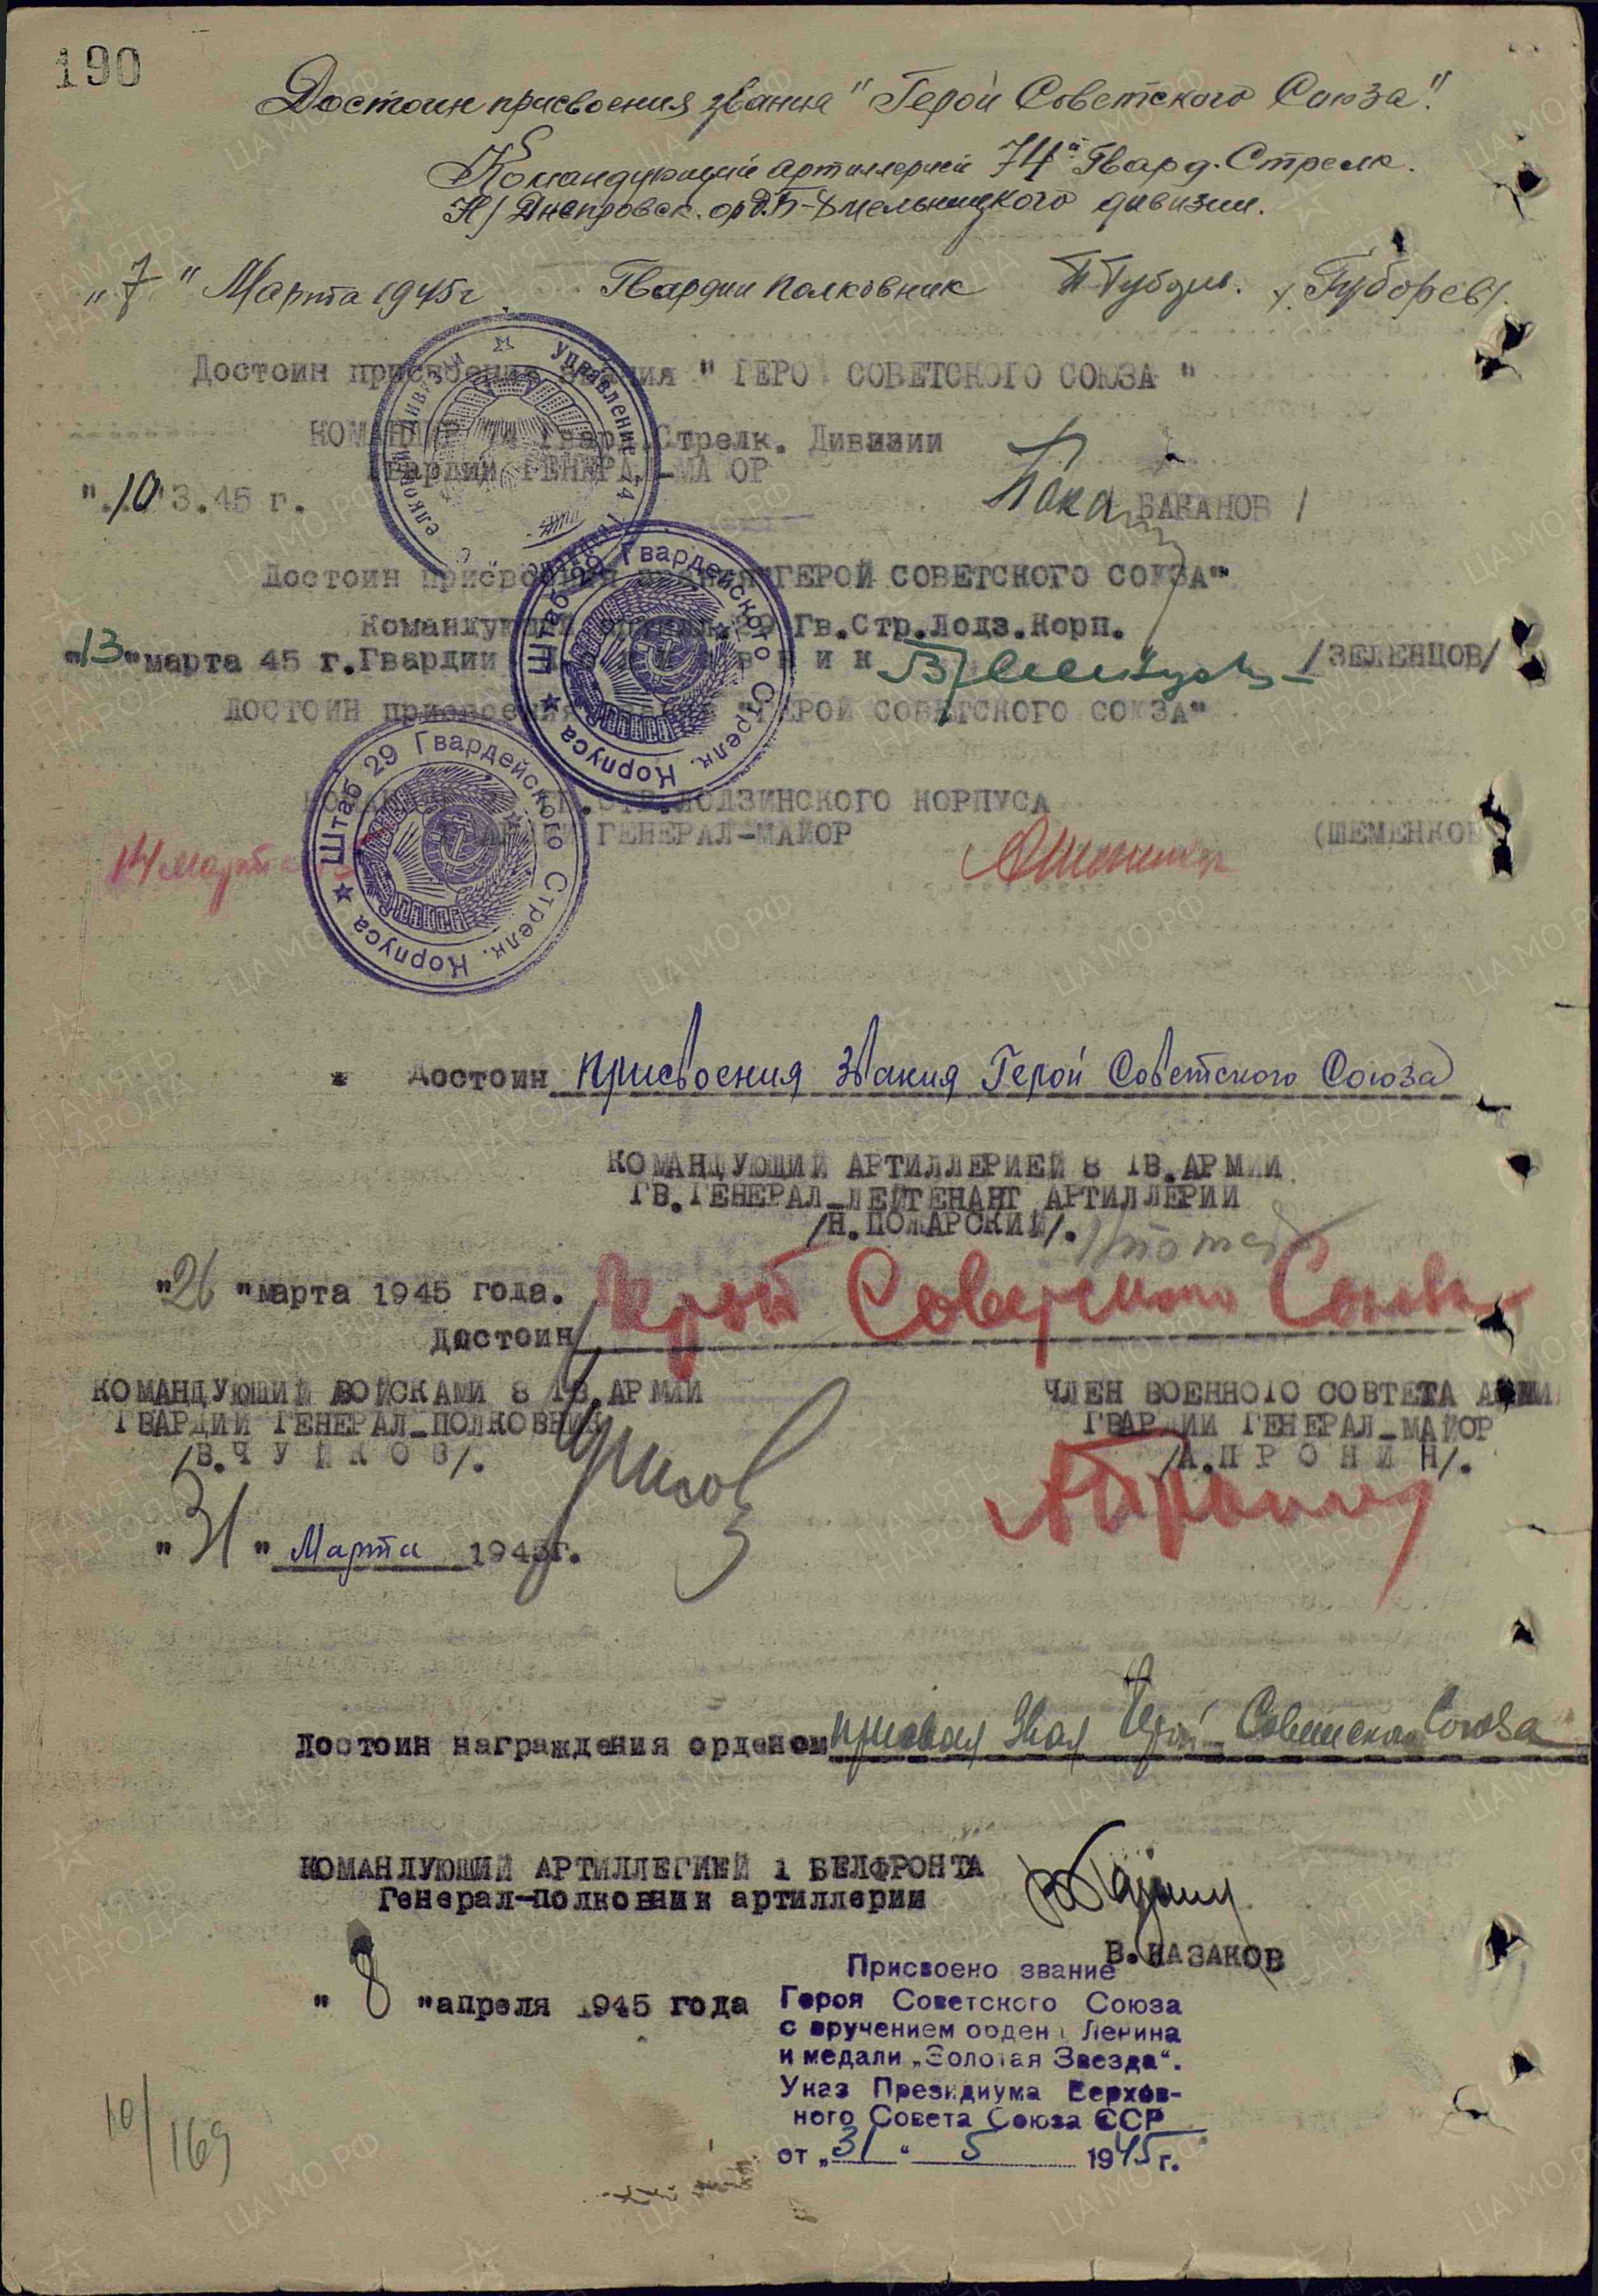 190
Достоин присвоения звания "Герой Советского Союза".
Командующий артиллерией 74й Гвард. Стрелк.
Н/Днепровск. орд. Б-Хмельницкого дивизии.
"7" Марта 1945г. Гвардии полковник /Губорев/.
Достоин присвоения звания " ГЕРО СОВЕТСКОГО СОЮЗА "
КОМАНДИР 74 Гвард. Стрелк. Дивизии
Гвардии ГЕНЕРАЛ-МА ОР
"10" 3.45 г. БАКАНОВ /
Достоин присвоения звания "ГЕРОЙ СОВЕТСКОГО СОЮЗА"
Командующий 29 Гв.Стр.Лодз.Корп.
"13" марта 45 г. Гвардии /ЗЕЛЕНЦОВ/
ДОСТОИН присвоения "ГЕРОЙ СОВЕТСКОГО СОЮЗА"
ЛОДЗИНСКОГО КОРПУСА
ГЕНЕРАЛ-МАЙОР (ШЕМЕНКОВ
14 марта
Управление 74
Штаб 29 Гвардейского Стрелк. Корпуса
Штаб 29 Гвардейского Стрелк. Корпуса
Достоин присвоения звания Герой Советского Союза
КОМАНДУЮЩИЙ АРТИЛЛЕРИЕЙ 8 ГВ.АРМИИ
ГВ.ГЕНЕРАЛ-ЛЕЙТЕНАНТ АРТИЛЛЕРИИ
/Н.ПОЖАРСКИЙ/.
"26" марта 1945 года.
Достоин Герой Советского Союза
КОМАНДУЮЩИЙ ВОЙСКАМИ 8 ГВ.АРМИИ ЧЛЕН ВОЕННОГО СОВТЕТА АРМИИ
ГВАРДИИ ГЕНЕРАЛ-ПОЛКОВНИК ГВАРДИИ ГЕНЕРАЛ-МАЙОР
/В.ЧУЙКОВ/. /А.ПРОНИН/.
"31" Марта 1945г.
Достоин награждения орденом присвоя звая Герой Советского Союза
КОМАНДУЮЩИЙ АРТИЛЛЕГИЕЙ 1 БЕЛФРОНТА
Генерал-полковник артиллерии
В.КАЗАКОВ
"8" апреля 1945 года
Присвоено звание
Героя Советского Союза
с вручением орден Ленина
и медали „Золотая Звезда".
Указ Президиума Верхов-
ного Совета Союза ССР
от „31" 5 1945г.
10/169